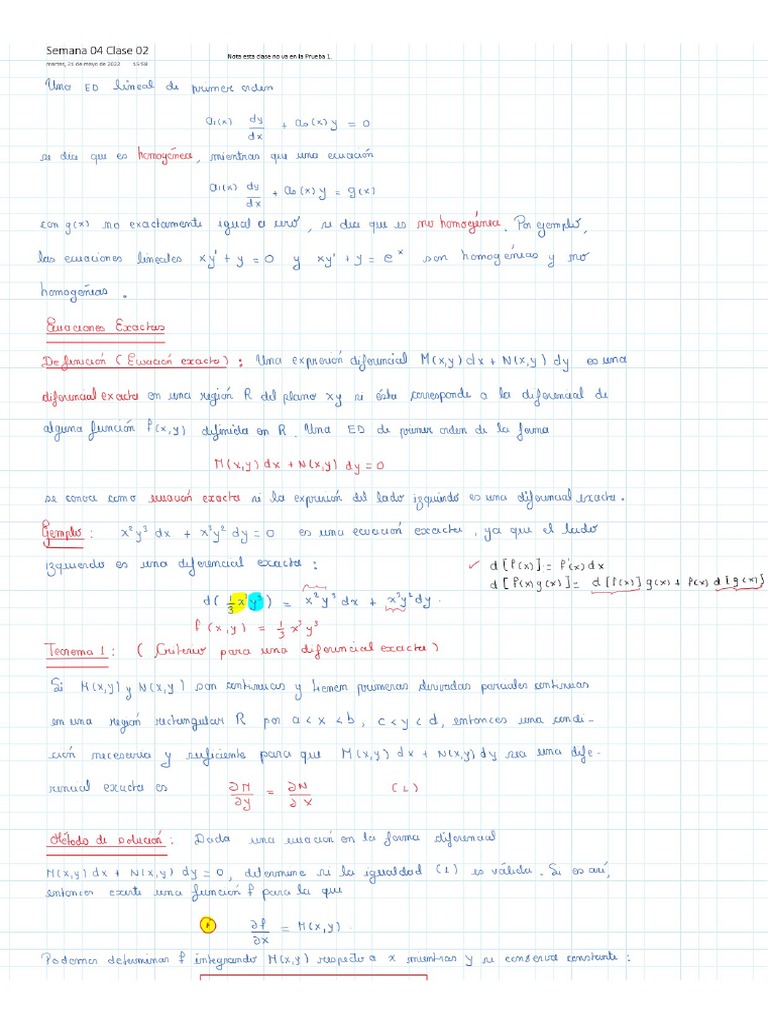 Semana 04 Clase 02
martes, 31 de mayo de 2022 15:58
Nota esta clase no va en la Prueba 1.
Una ED lineal de primer orden
a₁(x) dy/dx + a₀(x) y = 0
se dice que es homogénea, mientras que una ecuación
a₁(x) dy/dx + a₀(x) y = g(x)
con g(x) no exactamente igual a cero, se dice que es no homogénea. Por ejemplo,
las ecuaciones lineales xy' + y = 0 y xy' + y = eˣ son homogéneas y no
homogéneas.
Ecuaciones Exactas
Definición (Ecuación exacta): Una expresión diferencial M(x,y) dx + N(x,y) dy es una
diferencial exacta en una región R del plano xy si ésta corresponde a la diferencial de
alguna función f(x,y) definida en R. Una ED de primer orden de la forma
M(x,y) dx + N(x,y) dy = 0
se conoce como ecuación exacta si la expresión del lado izquierdo es una diferencial exacta.
Ejemplo: x²y³ dx + x³y² dy = 0 es una ecuación exacta, ya que el lado
izquierdo es una diferencial exacta:
✓ d[f(x)] = f'(x) dx
d[f(x)g(x)] = d[f(x)] g(x) + f(x) d[g(x)]
d(1/3 x³ y³) = x²y³ dx + x³y² dy.
f(x,y) = 1/3 x³y³
Teorema 1: (Criterio para una diferencial exacta)
Si M(x,y) y N(x,y) son continuas y tienen primeras derivadas parciales continuas
en una región rectangular R por a < x < b, c < y < d, entonces una condi-
ción necesaria y suficiente para que M(x,y) dx + N(x,y) dy sea una dife-
rencial exacta es ∂M/∂y = ∂N/∂x (1)
Método de solución: Dada una ecuación en la forma diferencial
M(x,y) dx + N(x,y) dy = 0, determine si la igualdad (1) es válida. Si es así,
entonces existe una función f para la que
∂f/∂x = M(x,y).
Podemos determinar f integrando M(x,y) respecto a x mientras y se conserva constante: